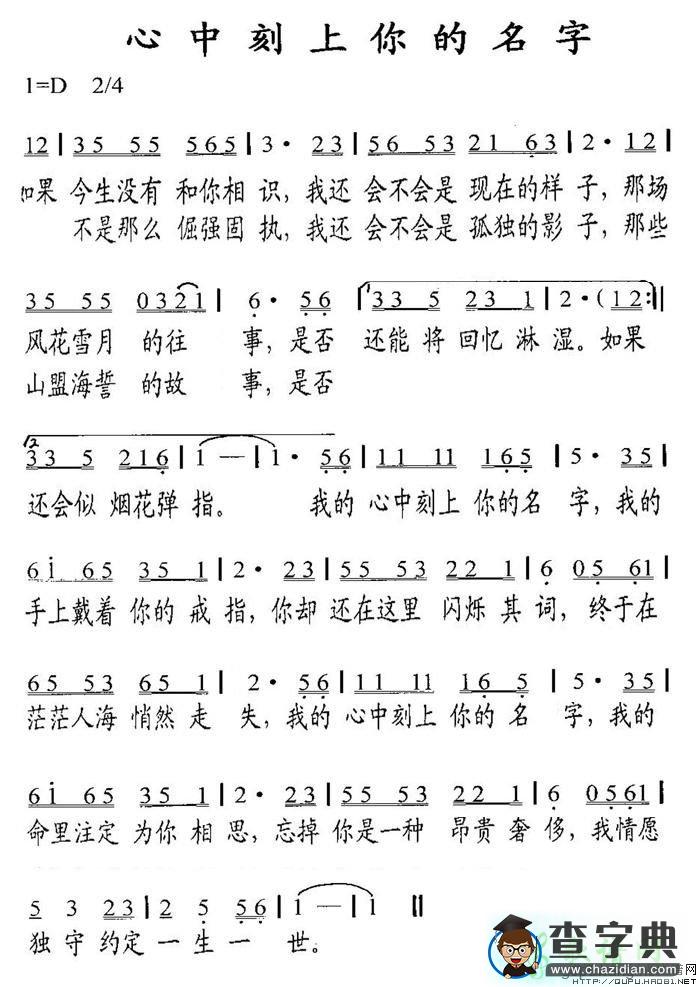 心中刻上你的名字
1=D 2/4
12 | 35 55 565 | 3· 23 | 56 53 21 63 | 2· 12 |
如果 今生没有 和你相 识，我还 会不会是 现在的样 子，那场
不是那么 倔强固 执，我还 会不会是 孤独的影 子，那些
35 55 0321 | 6· 56 | 33 5 23 1 | 2· (12 :||
风花雪月 的往 事，是否 还能 将 回忆 淋 湿。如果
山盟海誓 的故 事，是否
2
33 5 216 | 1 — | 1· 56 | 11 11 165 | 5· 35 |
还会似 烟花弹 指。 我的 心中刻上 你的名 字，我的
6i 65 35 1 | 2· 23 | 55 53 22 1 | 6 05 61 |
手上戴着 你的 戒 指，你却 还在这里 闪烁 其 词，终于在
65 53 65 1 | 2· 56 | 11 11 16 5 | 5· 35 |
茫茫人海 悄然 走 失，我的 心中刻上 你的 名 字，我的
6i 65 35 1 | 2· 23 | 55 53 22 1 | 6 0561 |
命里注定 为你 相 思，忘掉 你是一种 昂贵 奢 侈，我情愿
5 3 23 | 2 5 56 | 1 — | 1 ||
独 守 约定 一 生 一 世。
查字典
www.chazidian.com
http://QUPU.HAO81.NET